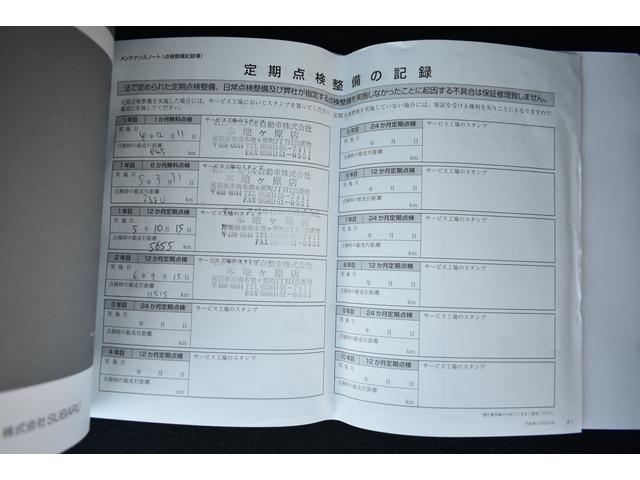 メンテナンスノート(点検整備記録簿)
定期点検整備の記録
法で定められた定期点検整備、日常点検整備及び弊社が指定する点検整備を実施しなかったことに起因する不具合は保証修理致しません。
定期点検整備を実施した場合には、サービス工場においてスタンプを貰ってください。定期点検整備を実施していない場合には、保証を受ける権利を失うことにもなりますので、
確実に実施してください。
1年目 1か月無料点検 サービス工場のスタンプ
実施日
4年12月11日
点検時の総走行距離
845 km
自動車株式会社
本地ヶ原店
〒488-0044 TEL(0561)55-7411
FAX(0561)51-0551
1年目 6か月無料点検 サービス工場のスタンプ
実施日
5年3月31日
点検時の総走行距離
km
自動車株式会社
本地ヶ原店
〒488-0044 TEL(0561)55-7411
FAX(0561)51-0551
1年目 12か月定期点検 サービス工場のスタンプ
実施日
5年10月15日
点検時の総走行距離
5655 km
本地ヶ原店
〒488-0044 TEL(0561)55-7411
FAX(0561)51-0551
2年目 12か月定期点検 サービス工場のスタンプ
実施日
6年9月15日
点検時の総走行距離
11515 km
自動車株式会社
本地ヶ原店
〒488-0044 TEL(0561)55-7411
FAX(0561)51-0551
3年目 24か月定期点検 サービス工場のスタンプ
実施日
年 月 日
点検時の総走行距離
km
4年目 12か月定期点検 サービス工場のスタンプ
実施日
年 月 日
点検時の総走行距離
km
5年目 24か月定期点検 サービス工場のスタンプ
実施日
年 月 日
点検時の総走行距離
km
6年目 12か月定期点検 サービス工場のスタンプ
実施日
年 月 日
点検時の総走行距離
km
7年目 24か月定期点検 サービス工場のスタンプ
実施日
年 月 日
点検時の総走行距離
km
8年目 12か月定期点検 サービス工場のスタンプ
実施日
年 月 日
点検時の総走行距離
km
9年目 24か月定期点検 サービス工場のスタンプ
実施日
年 月 日
点検時の総走行距離
km
10年目 12か月定期点検 サービス工場のスタンプ
実施日
年 月 日
点検時の総走行距離
km
株式会社SUBARU